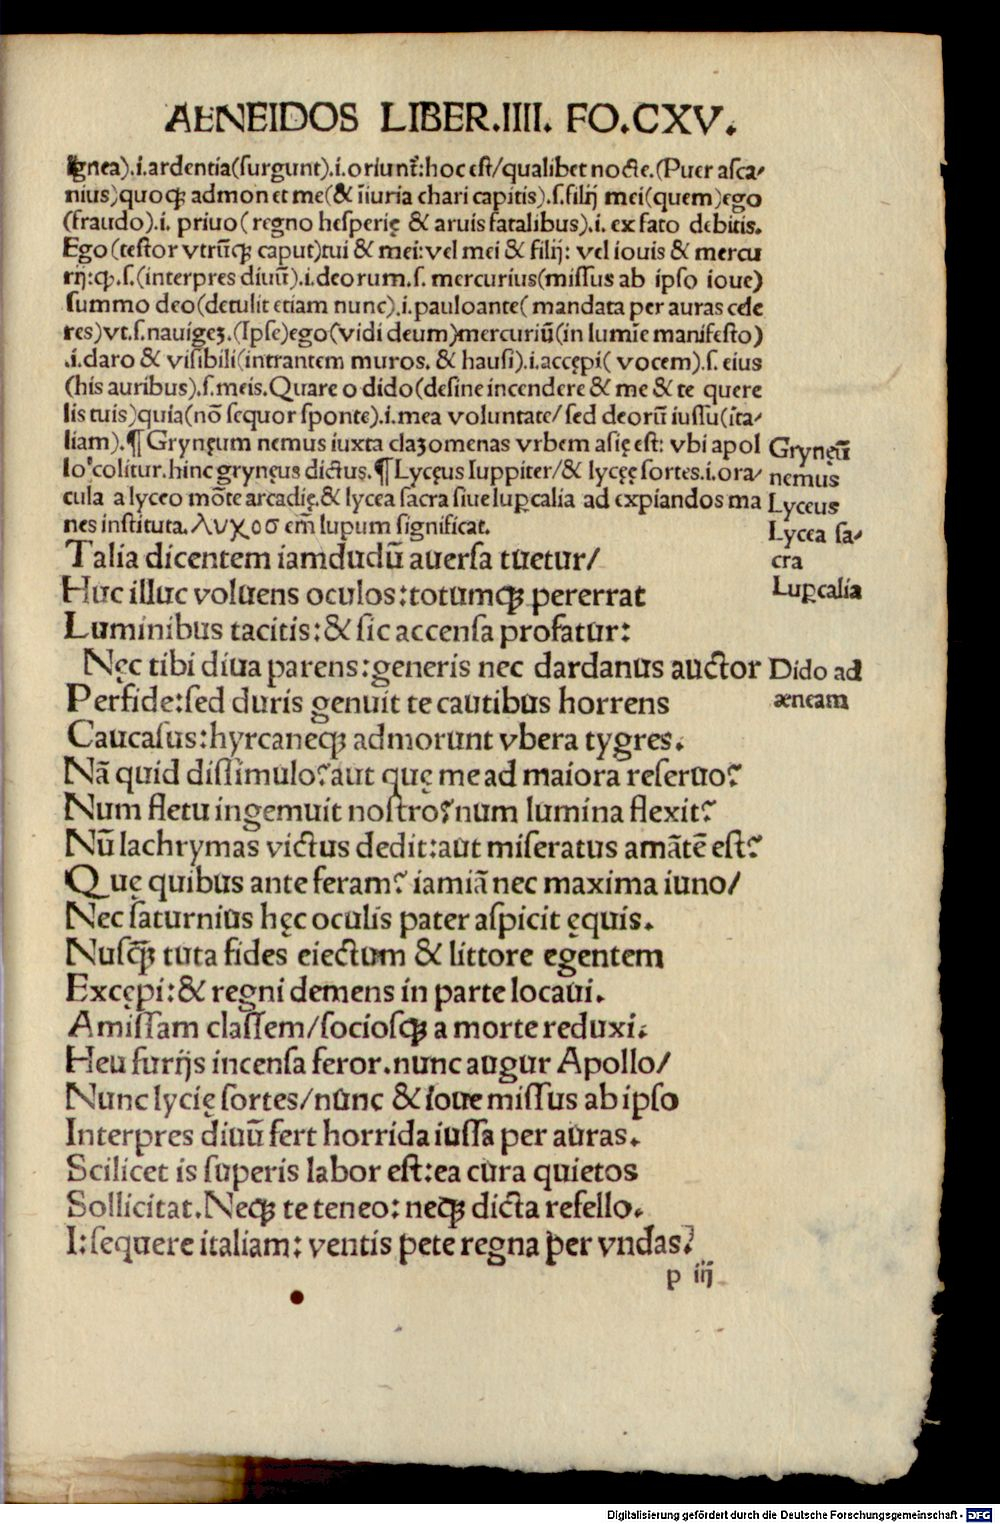 AENEIDOS LIBER.IIII. FO.CXV.
ignea).i.ardentia(surgunt).i.oriunt̃:hoc est/qualibet nocte.(Puer asca-
nius)quoqꝫ admonet me(& iĩuria chari capitis).s.filij mei(quem)ego
(fraudo).i. priuo( regno hesperię & aruis fatalibus).i. ex fato debitis.
Ego(testor vtrũqꝫ caput)tui & mei: vel mei & filij: vel iouis & mercu
rij:qꝫ.s.(interpres diuũ).i.deorum.s. mercurius(missus ab ipso ioue)
summo deo(detulit etiam nunc).i.pauloante( mandata per auras cele
res)vt.s.nauigeꝫ.(Ipse)ego(vidi deum)mercuriũ(in lumĩe manifesto)
.i.claro & visibili(intrantem muros. & hausi).i.accępi( vocem).s. eius
(his auribus).s.meis.Quare o dido(desine incendere & me & te quere
lis tuis)quia(nõ sequor sponte).i.mea voluntate/sed deorũ iussu(ita-
liam).¶ Grynęum nemus iuxta clazomenas vrbem asię est: vbi apol
lo colitur.hinc grynęus dictus.¶ Lycęus Iuppiter/& lycęę sortes.i.ora-
cula a lyceo mõte arcadię.& lycea sacra siue luꝑcalia ad expiandos ma
nes instituta.λυχοσ em̃ lupum significat.
Grynęũ
nemus
Lyceus
Lycea sa-
cra
Luꝑcalia
Talia dicentem iamdudũ auersa tuetur/
Huc illuc voluens oculos:totumqꝫ pererrat
Luminibus tacitis:& sic accensa profatur:
Nęc tibi diua parens:generis nec dardanus auctor
Dido ad
æneam
Perfide:sed duris genuit te cautibus horrens
Caucasus:hyrcaneqꝫ admorunt vbera tygres.
Nã quid dissimulo?aut quę me ad maiora reseruo?
Num fletu ingemuit nostro?num lumina flexit?
Nũ lachrymas victus dedit:aut miseratus amãtẽ est?
Quę quibus ante feram? iamiã nec maxima iuno/
Nec saturnius hęc oculis pater aspicit ęquis.
Nusqꝫ̃ tuta fides eiectum & littore egentem
Excępi:& regni demens in parte locaui.
Amissam classem/sociosqꝫ a morte reduxi.
Heu furijs incensa feror.nunc augur Apollo/
Nunc lycię sortes/nunc & ioue missus ab ipso
Interpres diuũ fert horrida iussa per auras.
Scilicet is superis labor est:ea cura quietos
Sollicitat.Neqꝫ te teneo: neqꝫ dicta refello.
I:sequere italiam: ventis pete regna per vndas?
p iij
Digitalisierung gefördert durch die Deutsche Forschungsgemeinschaft - DFG